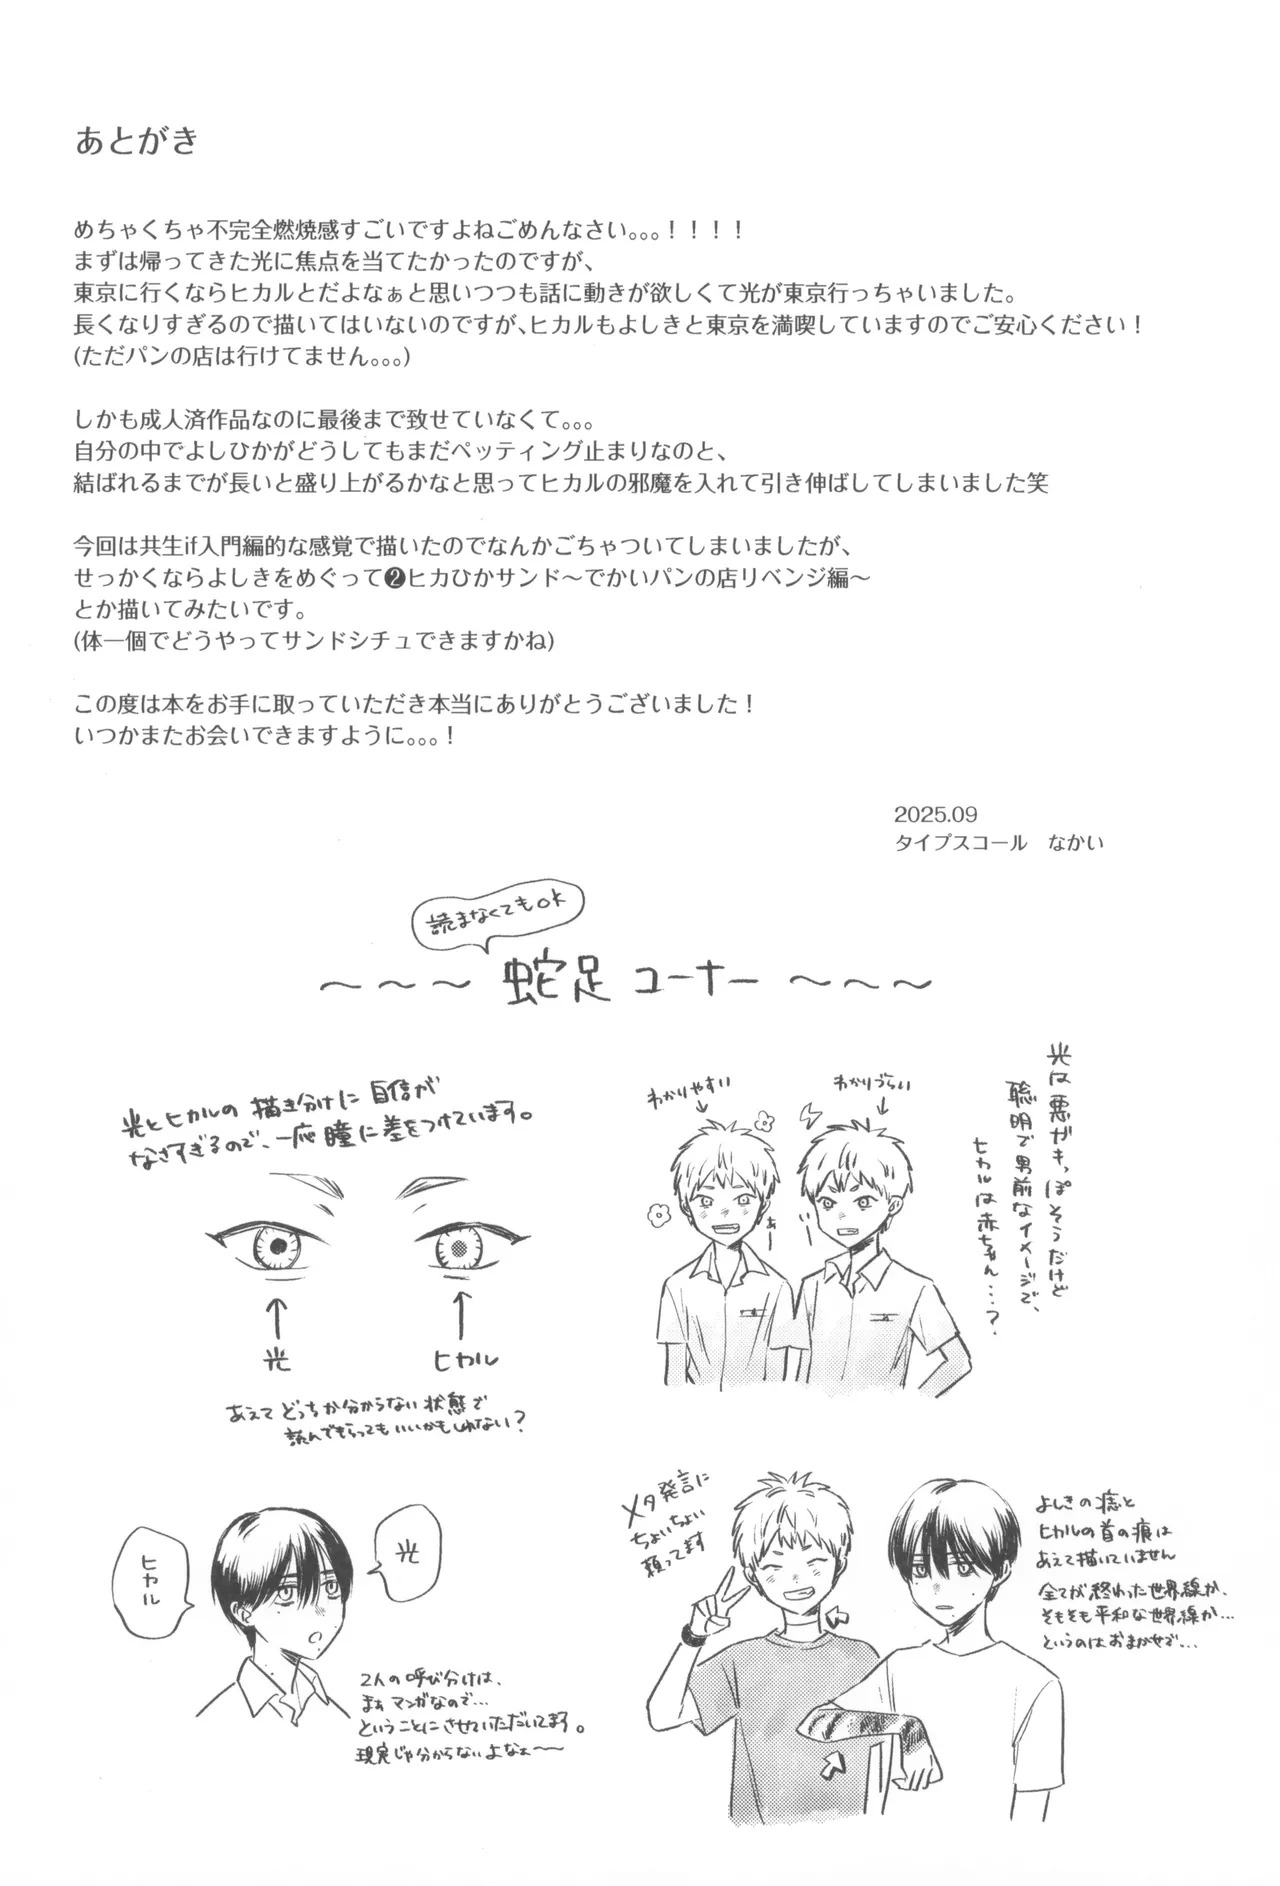 あとがき
めちゃくちゃ不完全燃焼感すごいですよねごめんなさい｡｡｡！！！！
まずは帰ってきた光に焦点を当てたかったのですが、
東京に行くならヒカルとだよなぁと思いつつも話に動きが欲しくて光が東京行っちゃいました。
長くなりすぎるので描いてはいないのですが、ヒカルもよしきと東京を満喫していますのでご安心ください！
(ただパンの店は行けてません｡｡｡)
しかも成人済作品なのに最後まで致せていなくて｡｡｡
自分の中でよしひかがどうしてもまだペッティング止まりなのと、
結ばれるまでが長いと盛り上がるかなと思ってヒカルの邪魔を入れて引き伸ばしてしまいました笑
今回は共生if入門編的な感覚で描いたのでなんかごちゃついてしまいましたが、
せっかくならよしきをめぐって❷ヒカひかサンド～でかいパンの店リベンジ編～
とか描いてみたいです。
(体一個でどうやってサンドシチュできますかね)
この度は本をお手に取っていただき本当にありがとうございました！
いつかまたお会いできますように｡｡｡！
2025.09
タイプスコール　なかい
読まなくてもok
～～～ 蛇足コーナー ～～～
光とヒカルの描き分けに自信が
なさすぎるので、一応瞳に差をつけています。
光
ヒカル
あえてどっちか分からない状態で
読んでもらってもいいかもしれない？
わかりやすい
わかりづらい
あー
い
光は悪ガキっぽそうだけど
聡明で男前なイメージで、
ヒカルは赤ちゃん…？
ヒカル
光
2人の呼び分けは、
まぁマンガなので…
ということにさせていただいてます。
現実じゃ分からないよなぁ〜〜
メタ発言に
ちょいちょい
頼ってます
よしきの痣と
ヒカルの首の痕は
あえて描いていません
全てが終わった世界線か、
そもそも平和な世界線か…
というのはおまかせで…